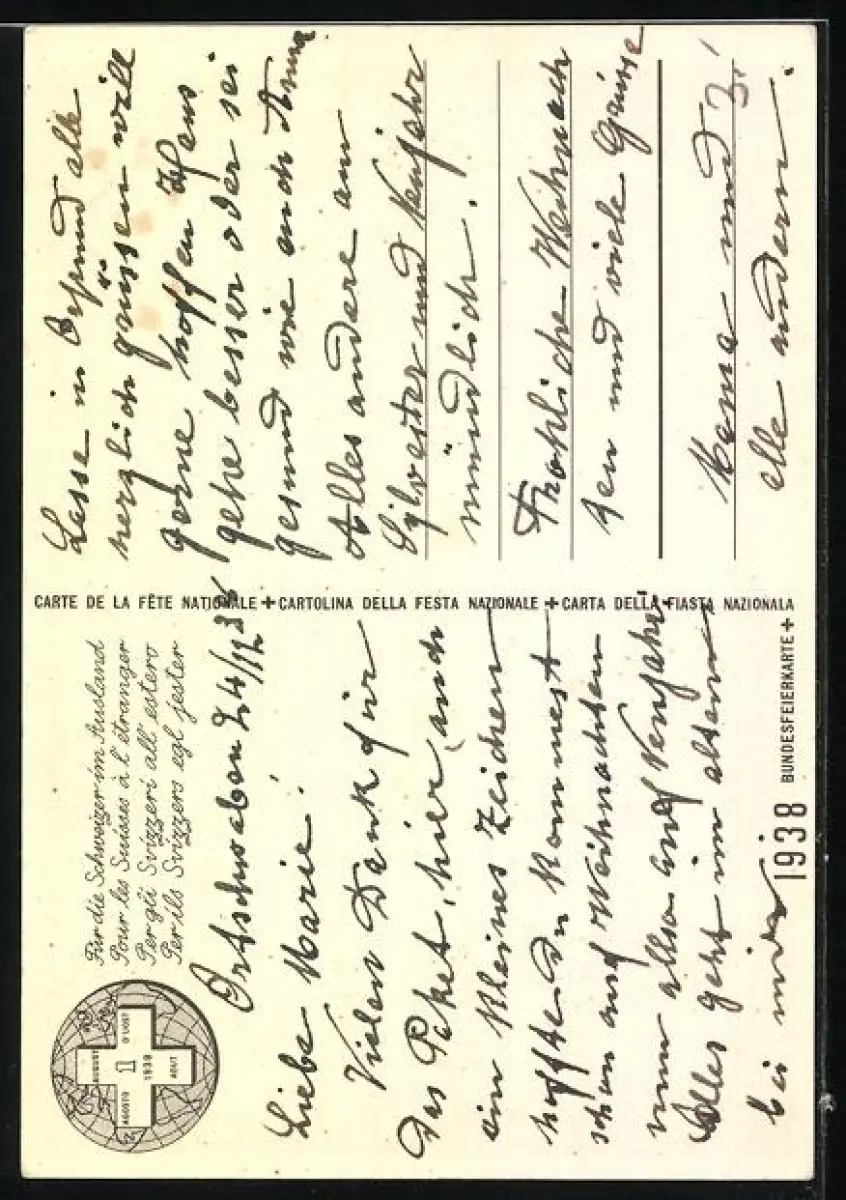 Für die Schweizer im Ausland
Pour les Suisses à l'étranger
Per gli Svizzeri all'estero
Per ils Svizzers egl jester
AUGUST
D'UOST
1
1938
AGOSTO
AOUT
Ortschwaben 24/12 38
Liebe Marie!
Vielen Dank für
das Paket, hier auch
ein kleines Zeichen
hoffte du kommest
schon auf Weihnachten
nun also auf Neujahr
Alles geht im alten
bei mir
1938 BUNDESFEIERKARTE +
CARTE DE LA FÊTE NATIONALE + CARTOLINA DELLA FESTA NAZIONALE + CARTA DELLA FIASTA NAZIONALA
Lasse in Orpund alle
herzlich grüssen will
gerne hoffen Hans
gehe besser oder sei
gesund wie auch Anna
Alles andere am
Sylvester und Neujahr
mündlich.
Frohliche Weihnach
ten und viele Grüsse
Mama und
alle andern.